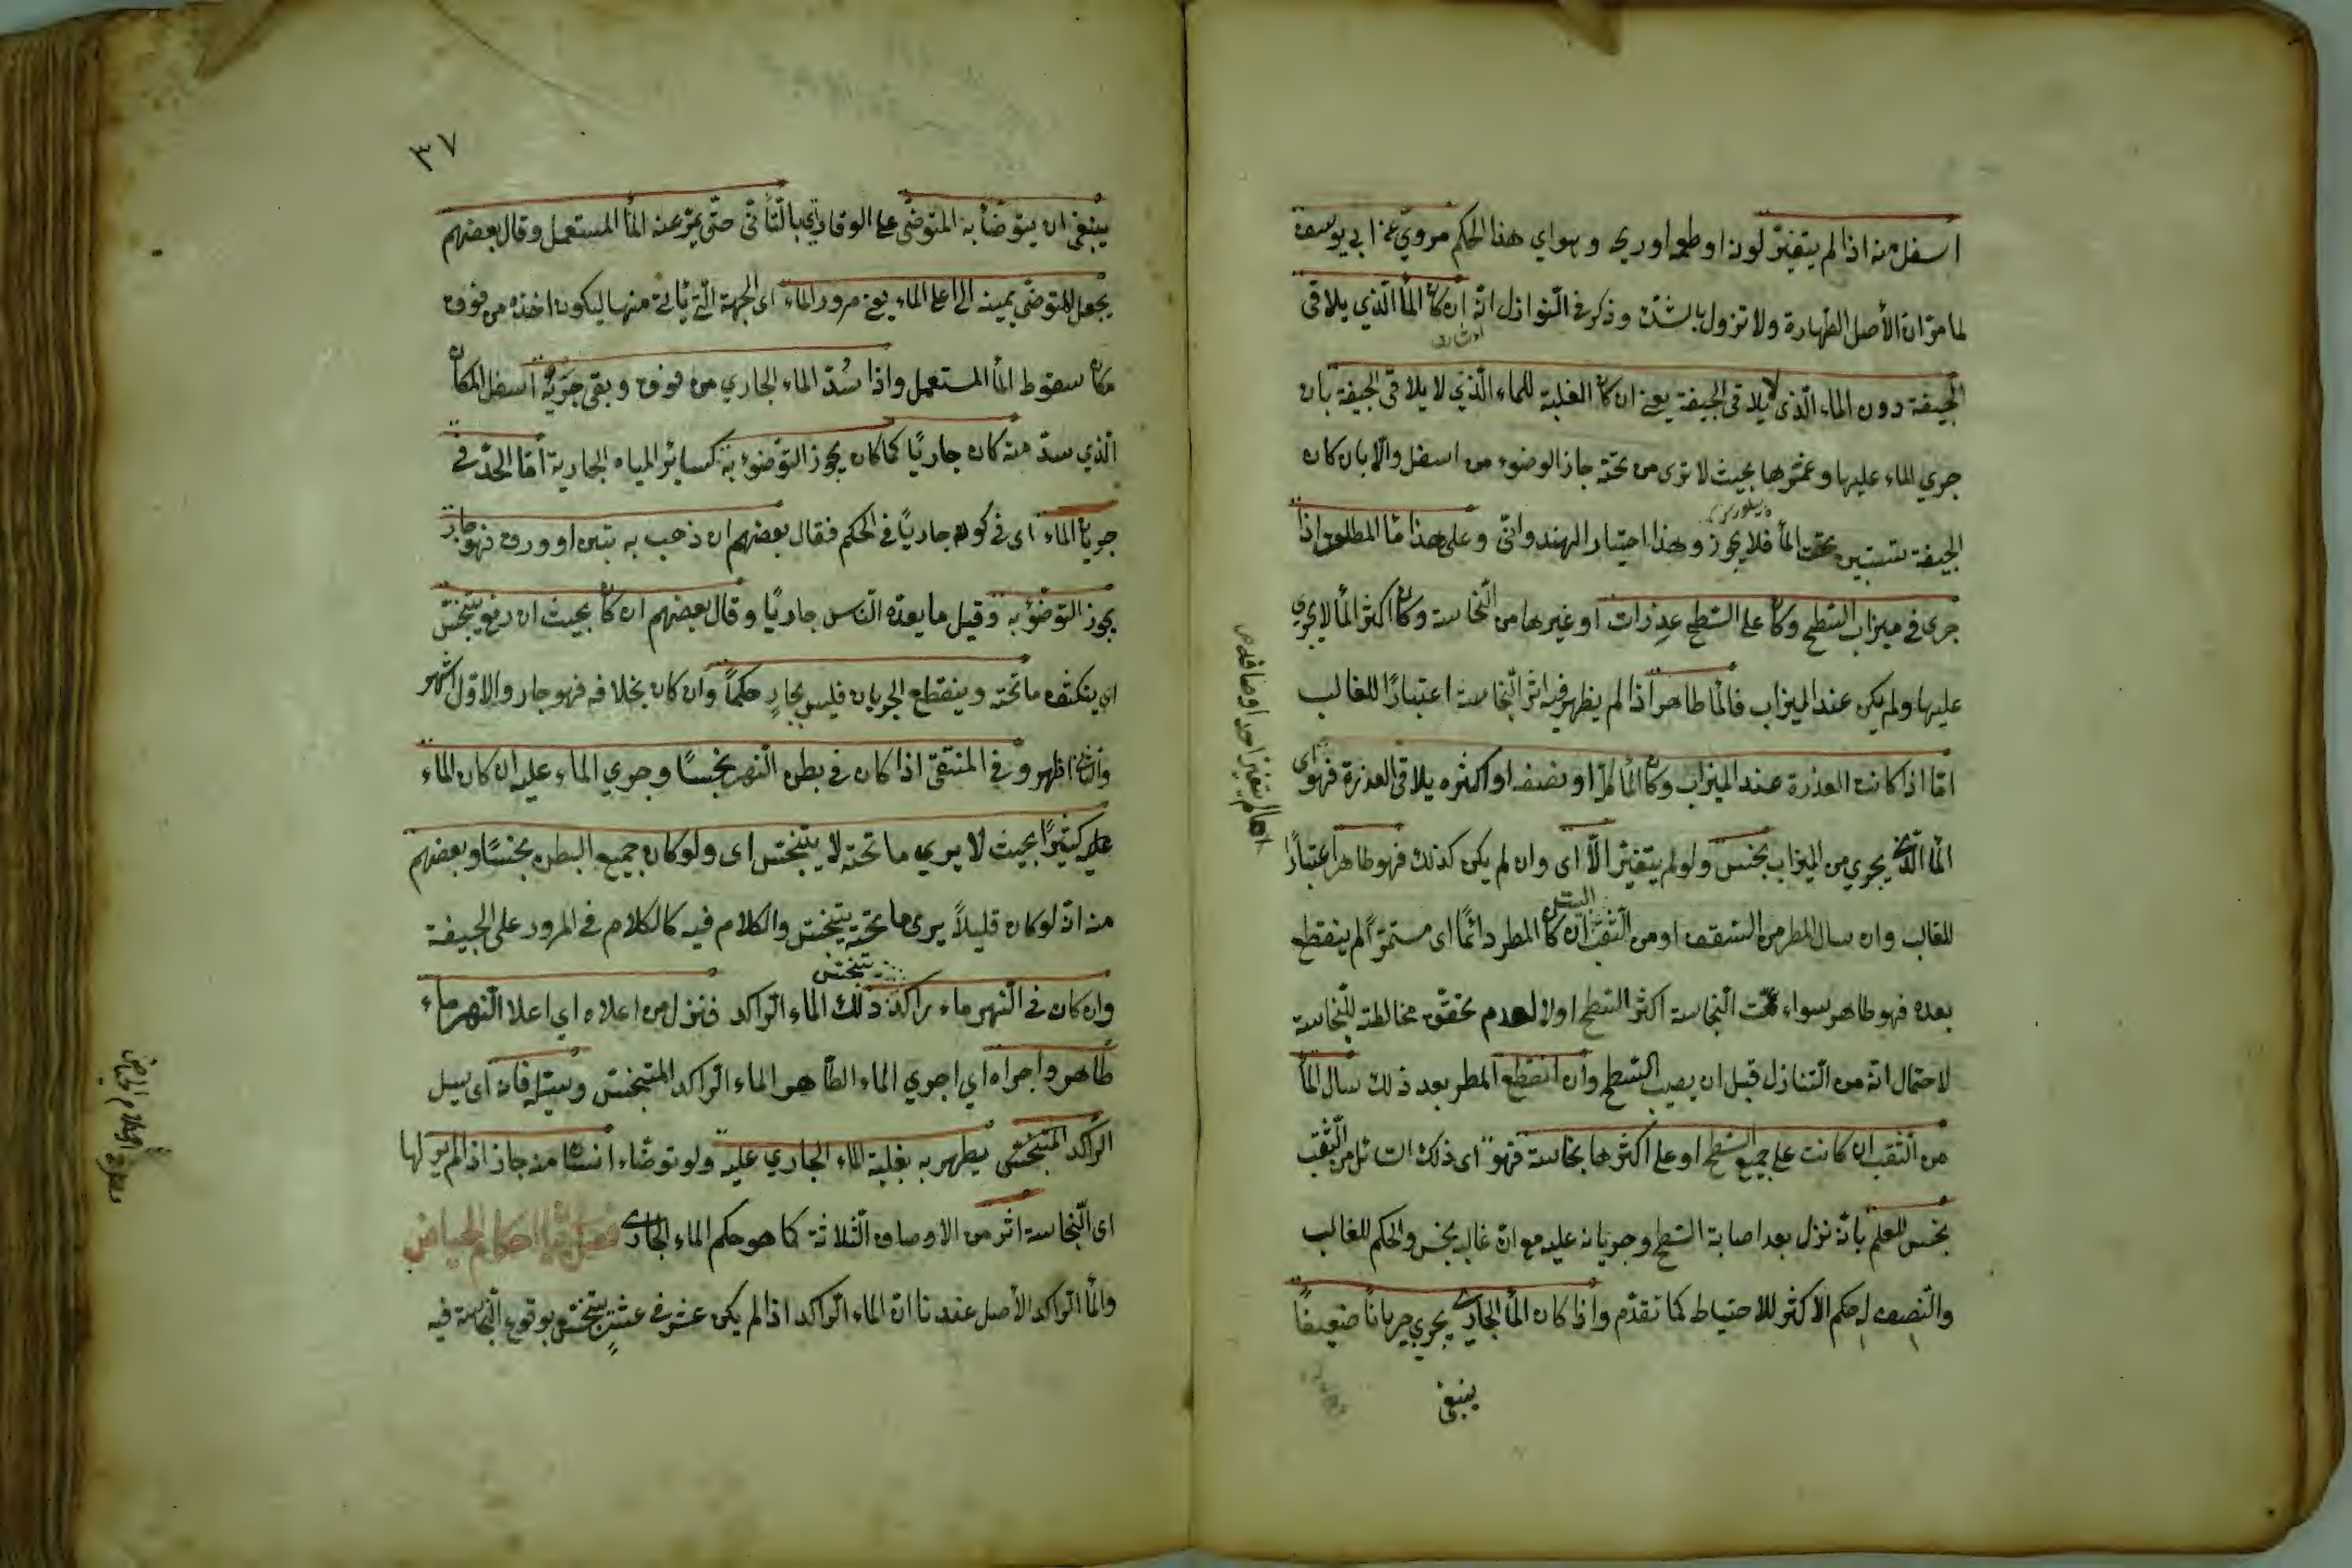 اسفل منه اذا لم يتغيّر لونه او طعمه او ريحه وهو اي هذا الحكم مروي عن ابي يوسف
لما مرّ ان الأصل الطهارة ولا تزول بالشك وذكر في النوازل انّه ان كان المأ الّذي يلاقى
الجيفة دون الماء الّذي لا يلاقى الجيفة يعني ان كان الغلبة للماء الّذي لا يلاقى الجيفة بان
جري الماء عليها وغمرها بحيث لا ترى من تحته جاز الوضوء من اسفل والّا بان كان
الجيفة تستبين تحت المأ فلا يجوز وهذا اختيار الهندوانّى وعلى هذا مأ المطر اذا
جرى في ميزاب السّطح وكان على السّطح عذرات او غيرها من النّجاسة وكان اكثر المأ لا يجري
عليها ولم يكن عند الميزاب فالمأ طاهر اذا لم يظهر فيه اثر النّجاسة اعتبارًا للغالب
امّا اذا كانت العذرة عند الميزاب وكان المأ كلّه او نصفه او اكثره يلاقى العذرة فهو اي
المأ الّذي يجري من الميزاب نجس ولو لم يتغيّر والّا اى وان لم يكن كذلك فهو طاهر اعتبارًا
للغالب وان سال المطر من السّقف او من الثّقب ان كان المطر دائمًا اى مستمرًّا لم ينقطع
بعده فهو طاهر سواء عمّت النّجاسة اكثر السّطح اولا لعدم تحقّق مخالطته للنّجاسة
لاحتمال انّه من النّازل قبل ان يصيب السّطح وان انقطع المطر بعد ذلك سال المأ
من الثّقب ان كانت على جميع السّطح او على اكثرها نجاسة فهو اى ذلك السّائل من الثّقب
نجس للعلم بانّه نزل بعد اصابة السّطح وجريانه عليه مع انّ غالبه نجس والحكم للغالب
والنّصف له حكم الاكثر للاحتياط كما تقدّم واذا كان المأ الجاري يجري جريانًا ضعيفًا
ينبغى
اى ما لم يتغيّر احد اوصافه
٣٧
ينبغى ان يتوضّأ به المتوضّى على الوقار اي بالتّأنّى حتّى يمرّ عنه المأ المستعمل وقال بعضهم
يجعل المتوضّى يمينه الى اعلى الماء يعني مرور الماء اى الجهة الّتي يأتي منها ليكون اخذه من فوق
مكان سقوط المأ المستعمل واذا سُدّ الماء الجاري من فوق وبقى جَرْيُه اسفل المكان
الّذي سدّ منه كان جاريًا كما كان يجوز التوضّؤ به كسائر المياه الجارية امّا الحدّ في
جريان الماء اى في كونه جاريًا في الحكم فقال بعضهم ان ذهب به بتبن او ورق فهو جار
يجوز التوضّؤ به وقيل ما يعدّه النّاس جاريًا وقال بعضهم ان كان بحيث ان رفع
اي ينكشف ما تحته وينقطع الجريان فليس بجارٍ حكمًا وان كان بخلافه فهو جار والاوّل اشهر
والثاني اظهر وفي المنتقى اذا كان في بطن النّهر نجسًا وجري الماء عليه ان كان الماء
عليه كثيرًا بحيث لا يري ما تحته لا يتنجّس اى ولو كان جميع البطن نجسًا وبعضهم
منه انّه لو كان قليلًا يرى ما تحته يتنجّس والكلام فيه كالكلام في المرور على الجيفة
وان كان في النّهر ماء راكد ذلك الماء الرّاكد فنزل من اعلاه اي اعلا النّهر ماء
يتنجّس
طاهر واجراه اي اجري الماء الطّاهر الماء الرّاكد المتنجّس وسيّله فانّه اى سيل
الرّاكد المتنجّس يطهر به بغلبة الماء الجاري عليه ولو توضّاء انسان منه جاز اذا لم ير لها
اى النّجاسة اثر من الاوصاف الثّلاثة كما هو حكم الماء الجاري فصل في احكام الحياض
والمأ الرّاكد الأصل عندنا انّ الماء الرّاكد اذا لم يكن عشر في عشرٍ يتنجّس بوقوع النّجاسة فيه